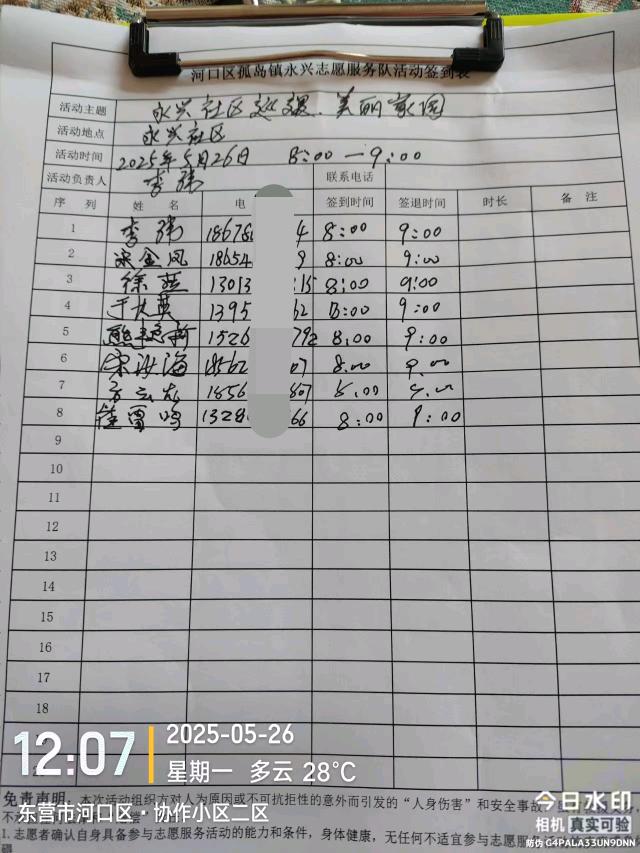 河口区孤岛镇永兴志愿服务队活动签到表
活动主题 永兴社区 美丽家园
活动地点 永兴社区
活动时间 2025年5月26日 8:00—9:00
活动负责人 李 联系电话
序 列 姓 名 电 签到时间 签退时间 时长 备 注
1 李 18678 4 8:00 9:00
2 宋金凤 18654 9 8:00 9:00
3 徐燕 13013 15 8:00 9:00
4 于大英 1395 62 8:00 9:00
5 1526 792 8.00 9:00
6 宋汝海 18562 07 8.00 9.00
7 1856 807 8.00 9.00
8 1328 66 8:00 9:00
9
10
11
12
13
14
15
16
17
18
12:07 2025-05-26
星期一 多云 28℃
东营市河口区·协作小区二区
免责声明：本次活动组织方对人为原因或不可抗拒性的意外而引发的“人身伤害”和安全事故
1. 志愿者确认自身具备参与志愿服务活动的能力和条件，身体健康，无任何不适宜参与志愿服务
今日水印
相机 真实可验
防伪 G4PALA33UN9DNN